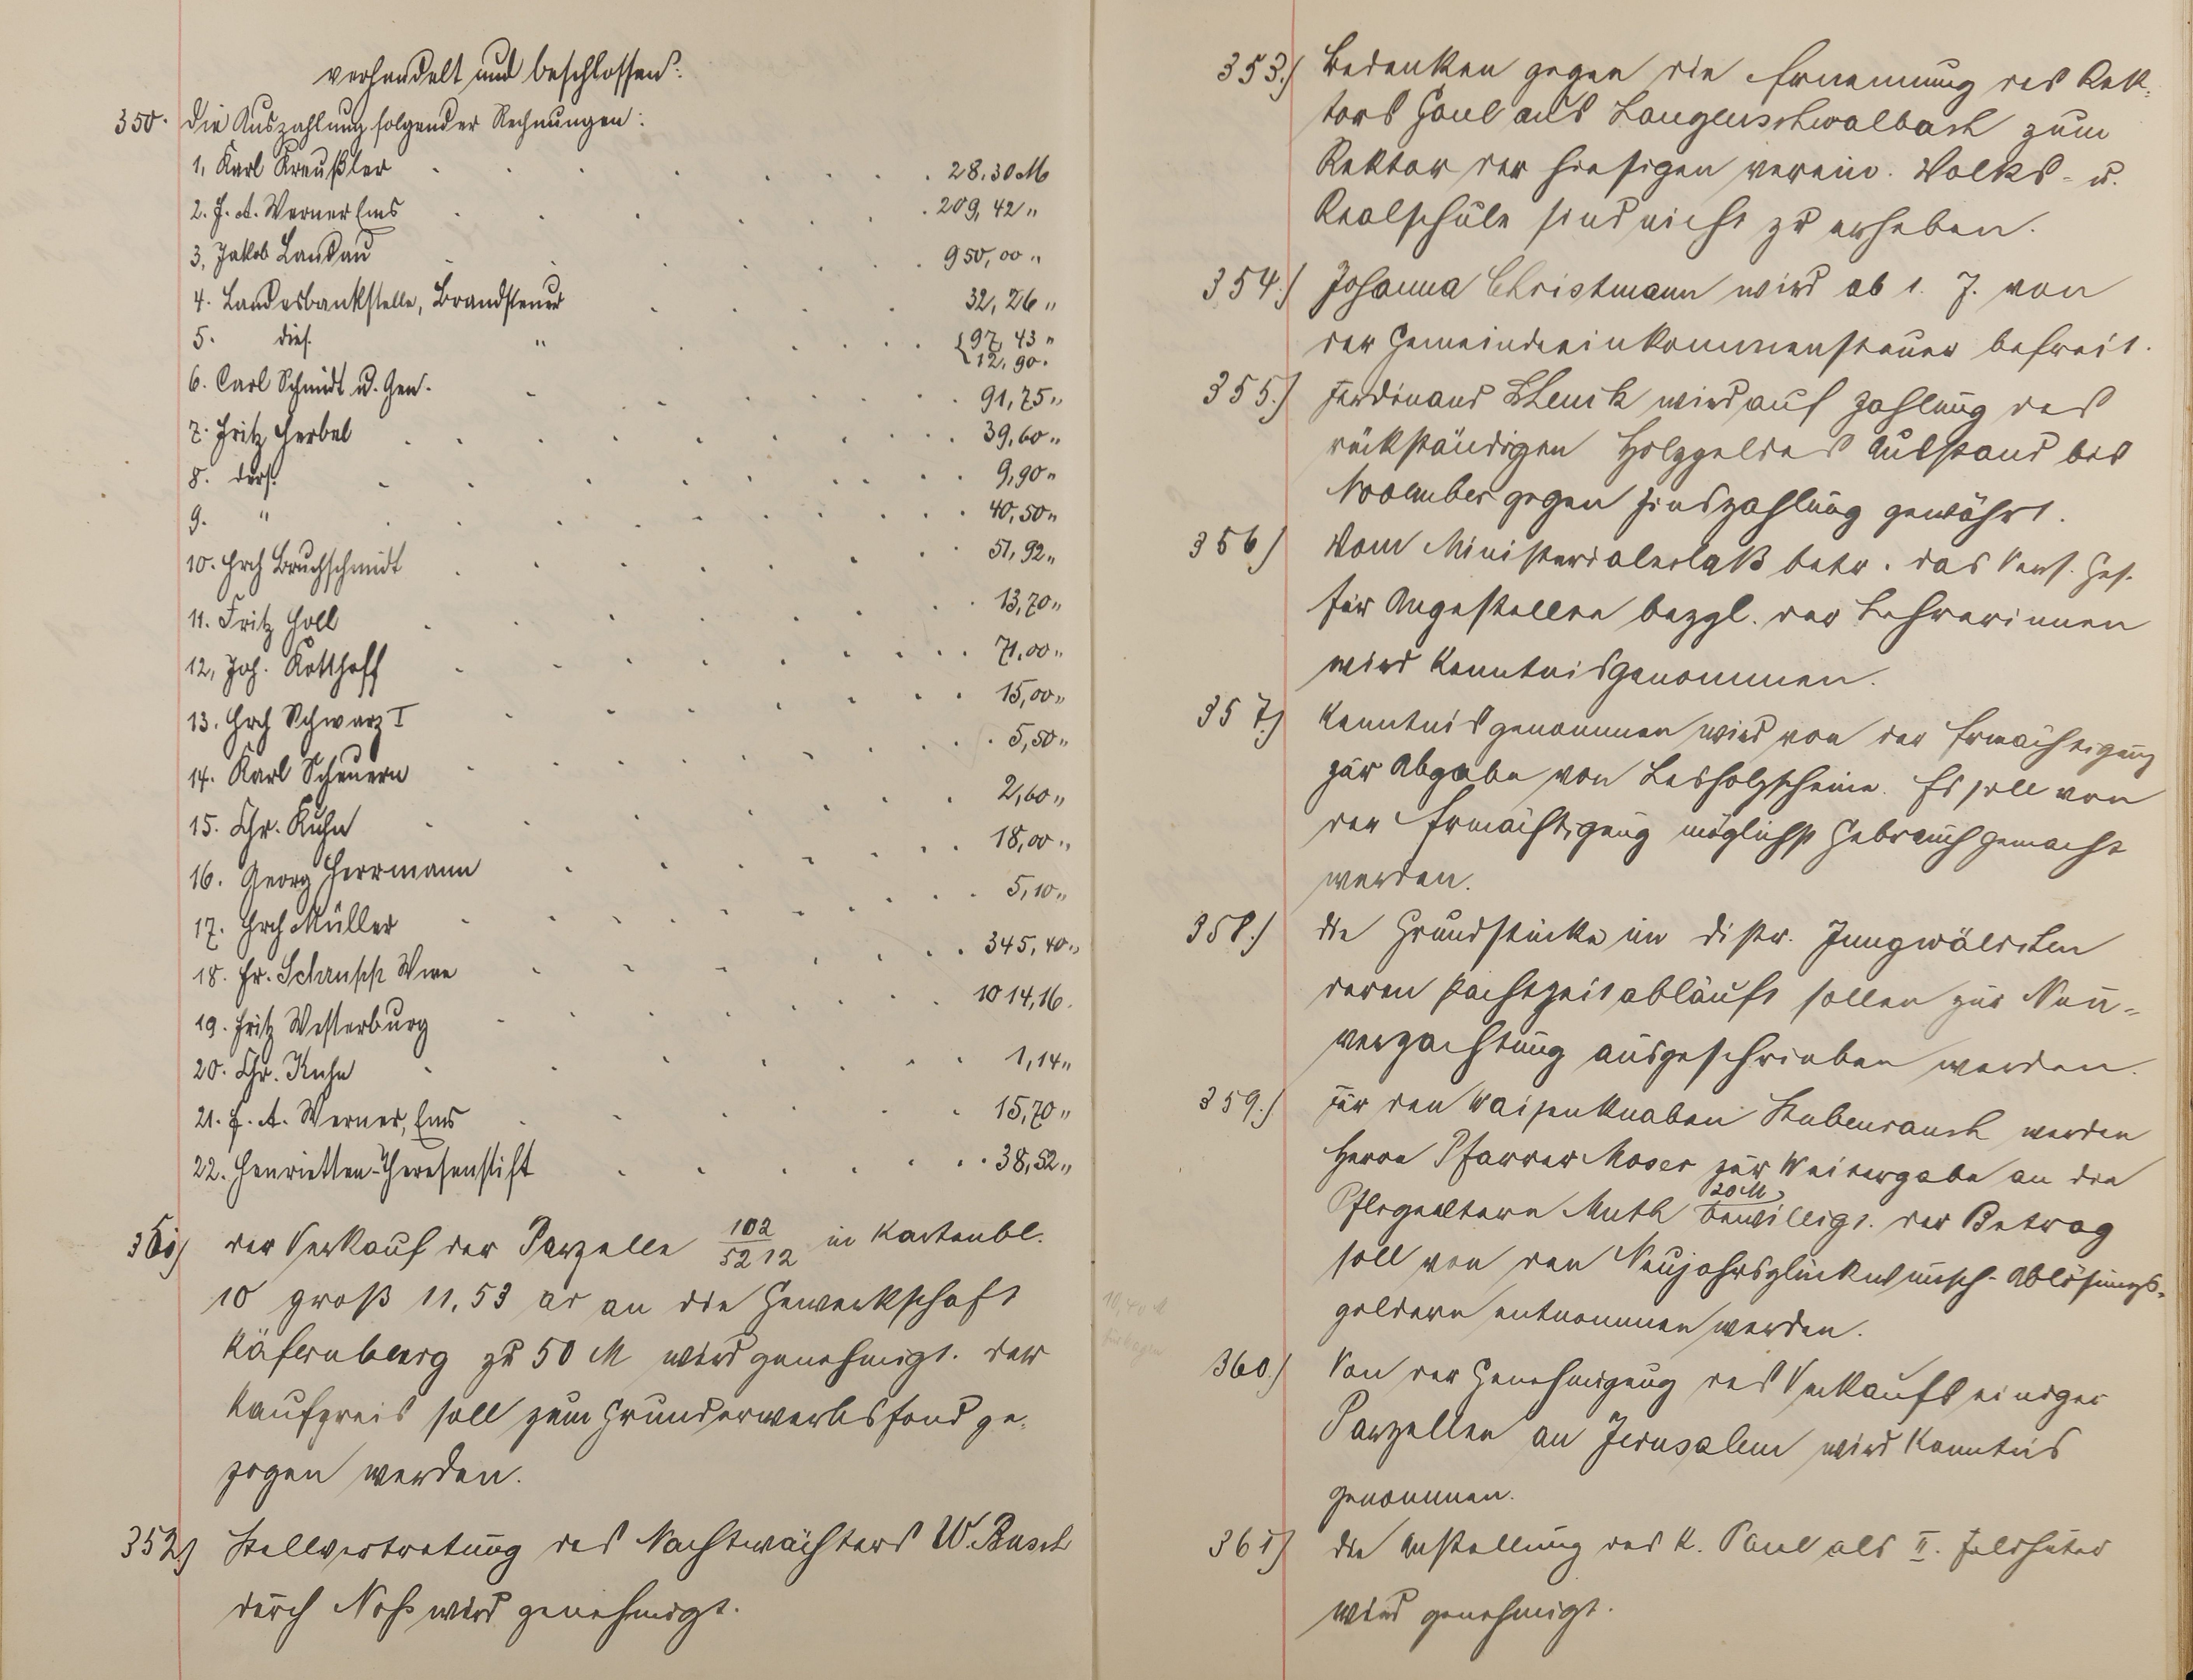 verhandelt und beschlossen:
350. Die Auszahlung folgender Rechnungen:
1, Karl Kreußler 28.30 M
2. F. A. Werner Ems 209,42 "
3, Jakob Landau 950,00 "
4. Landesbankstelle, Brandsteuer 32,26 "
5. dies. " { 97,43 "
12,90.
6. Carl Schmidt u. Gen. 91,75 "
7. Fritz Herbel 39,60 "
8. ders. 9,90 "
9. " 40,50 "
10. Hrch Bruchschmidt 51,92 "
11. Fritz Holl 13,70 "
12, Joh. Kotthoff 71,00 "
13. Hrch Schwarz I 15,00 "
14. Karl Scheuern 5,50 "
15. Chr. Kuhn 2,60 "
16. Georg Herrmann 18,00 "
17. Hrch Müller 5,10 "
18. Fr. Schrupp Wwe 345,40 "
19. Fritz Westerburg 1014,16.
20. Chr. Kuhn 1,14 "
21. F. A. Werner, Ems 15,70 "
22. Henrietten-Theresenstift 38,52 "
351) Der Verkauf der Parzelle 102/5212 in Kartenbl.
10 groß 11,53 ar an die Gewerkschaft
Käfernberg zu 50 M wird genehmigt. Der
Kaufpreis soll zum Grunderwerbsfond ge-
zogen werden.
352) Stellvertretung des Nachtwächters W. Busch
durch Noß wird genehmigt.
353.) Bedenken gegen die Ernennung des Rek-
tors Gaul aus Langenschwalbach zum
Rektor der hiesigen verein. Volks- u.
Realschule sind nicht zu erheben.
354.) Johanna Christmann wird ab 1. J. von
der Gemeindeeinkommensteuer befreit.
355.) Ferdinand Schenck wird auf Zahlung des
rückständigen Holzgeldes Ausstand bis
November gegen Zinszahlung gewährt.
356) Vom Ministerialerlaß betr. das Vers. Ges.
für Angestellte bezgl. der Lehrerinnen
wird Kenntnis genommen.
357.) Kenntnis genommen wird von der Ermächtigung
zur Abgabe von Lesholzscheine. Es soll von
der Ermächtigung möglichst Gebrauch gemacht
werden.
358.) Die Grundstücke im Distr. Jungwäldchen
deren Pachtzeit abläuft sollen zur Neu-
verpachtung ausgeschrieben werden.
359.) Für den Waisenknaben Stubenrauch werden
Herrn Pfarrer Moser zur Weitergabe an die
Pflegeeltern Muth 20 M bewilligt. Der Betrag
soll von den Neujahrsglückwunsch-Ablösungs-
geldern entnommen werden.
360.) Von der Genehmigung des Verkaufs einiger
Parzellen an Jerusalem wird Kenntnis
genommen.
361) Die Anstellung des K. Paul als II. Feldhüter
wird genehmigt.